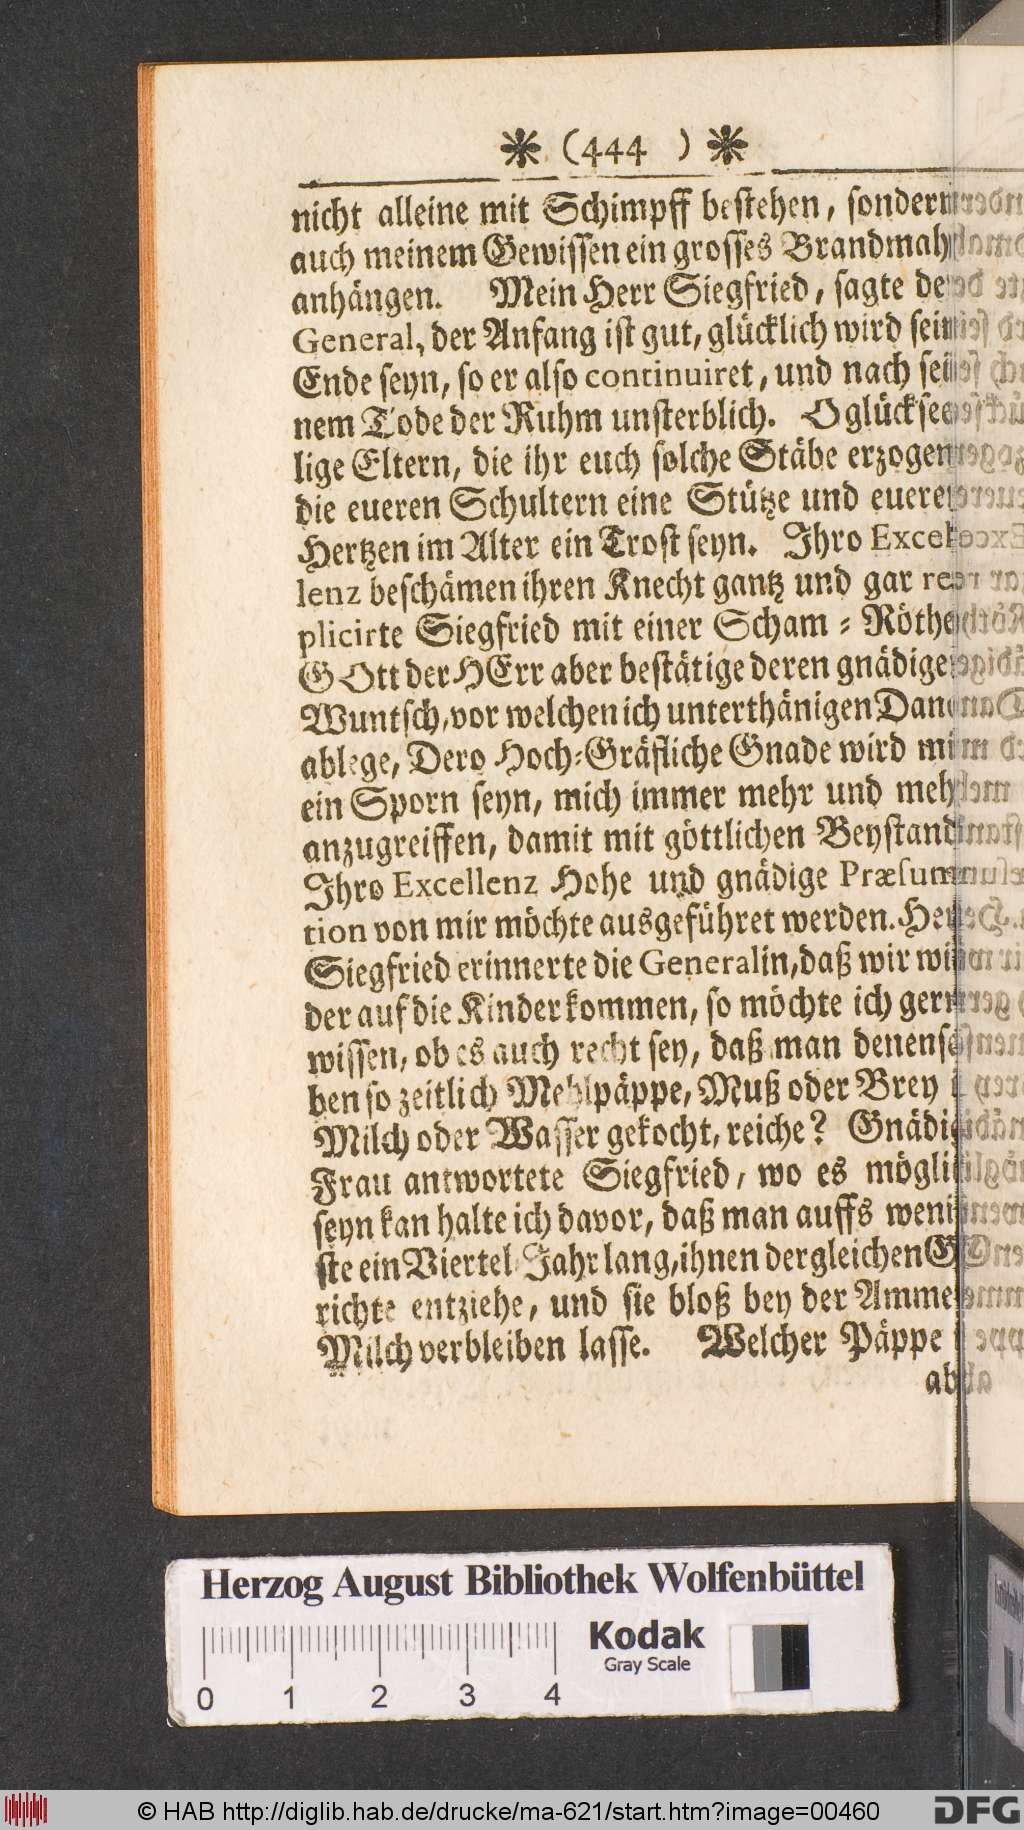 * (444 ) *
nicht alleine mit Schimpff bestehen, sondern
auch meinem Gewissen ein grosses Brandmahl
anhängen. Mein Herr Siegfried, sagte der
General, der Anfang ist gut, glücklich wird sein
Ende seyn, so er also continuiret, und nach sei-
nem Tode der Ruhm unsterblich. O glücksee-
lige Eltern, die ihr euch solche Stäbe erzogen
die eueren Schultern eine Stütze und eueren
Hertzen im Alter ein Trost seyn. Ihro Excel-
lenz beschämen ihren Knecht gantz und gar re-
plicirte Siegfried mit einer Scham-Röthe
GOtt der HErr aber bestätige deren gnädigen
Wuntsch, vor welchen ich unterthänigen Danck
ablege, Dero Hoch-Gräfliche Gnade wird mir
ein Sporn seyn, mich immer mehr und mehr
anzugreiffen, damit mit göttlichen Beystand
Ihro Excellenz Hohe und gnädige Præsum-
tion von mir möchte ausgeführet werden. Herr
Siegfried erinnerte die Generalin, daß wir wie-
der auf die Kinder kommen, so möchte ich gern
wissen, ob es auch recht sey, daß man denensel-
ben so zeitlich Mehlpäppe, Muß oder Brey in
Milch oder Wasser gekocht, reiche? Gnädige
Frau antwortete Siegfried, wo es möglich
seyn kan halte ich davor, daß man auffs wenig-
ste ein Viertel-Jahr lang, ihnen dergleichen Ge-
richte entziehe, und sie bloß bey der Ammen-
Milch verbleiben lasse. Welcher Päppe
ab-
Herzog August Bibliothek Wolfenbüttel
Kodak
Gray Scale
0 1 2 3 4
© HAB http://diglib.hab.de/drucke/ma-621/start.htm?image=00460
DFG